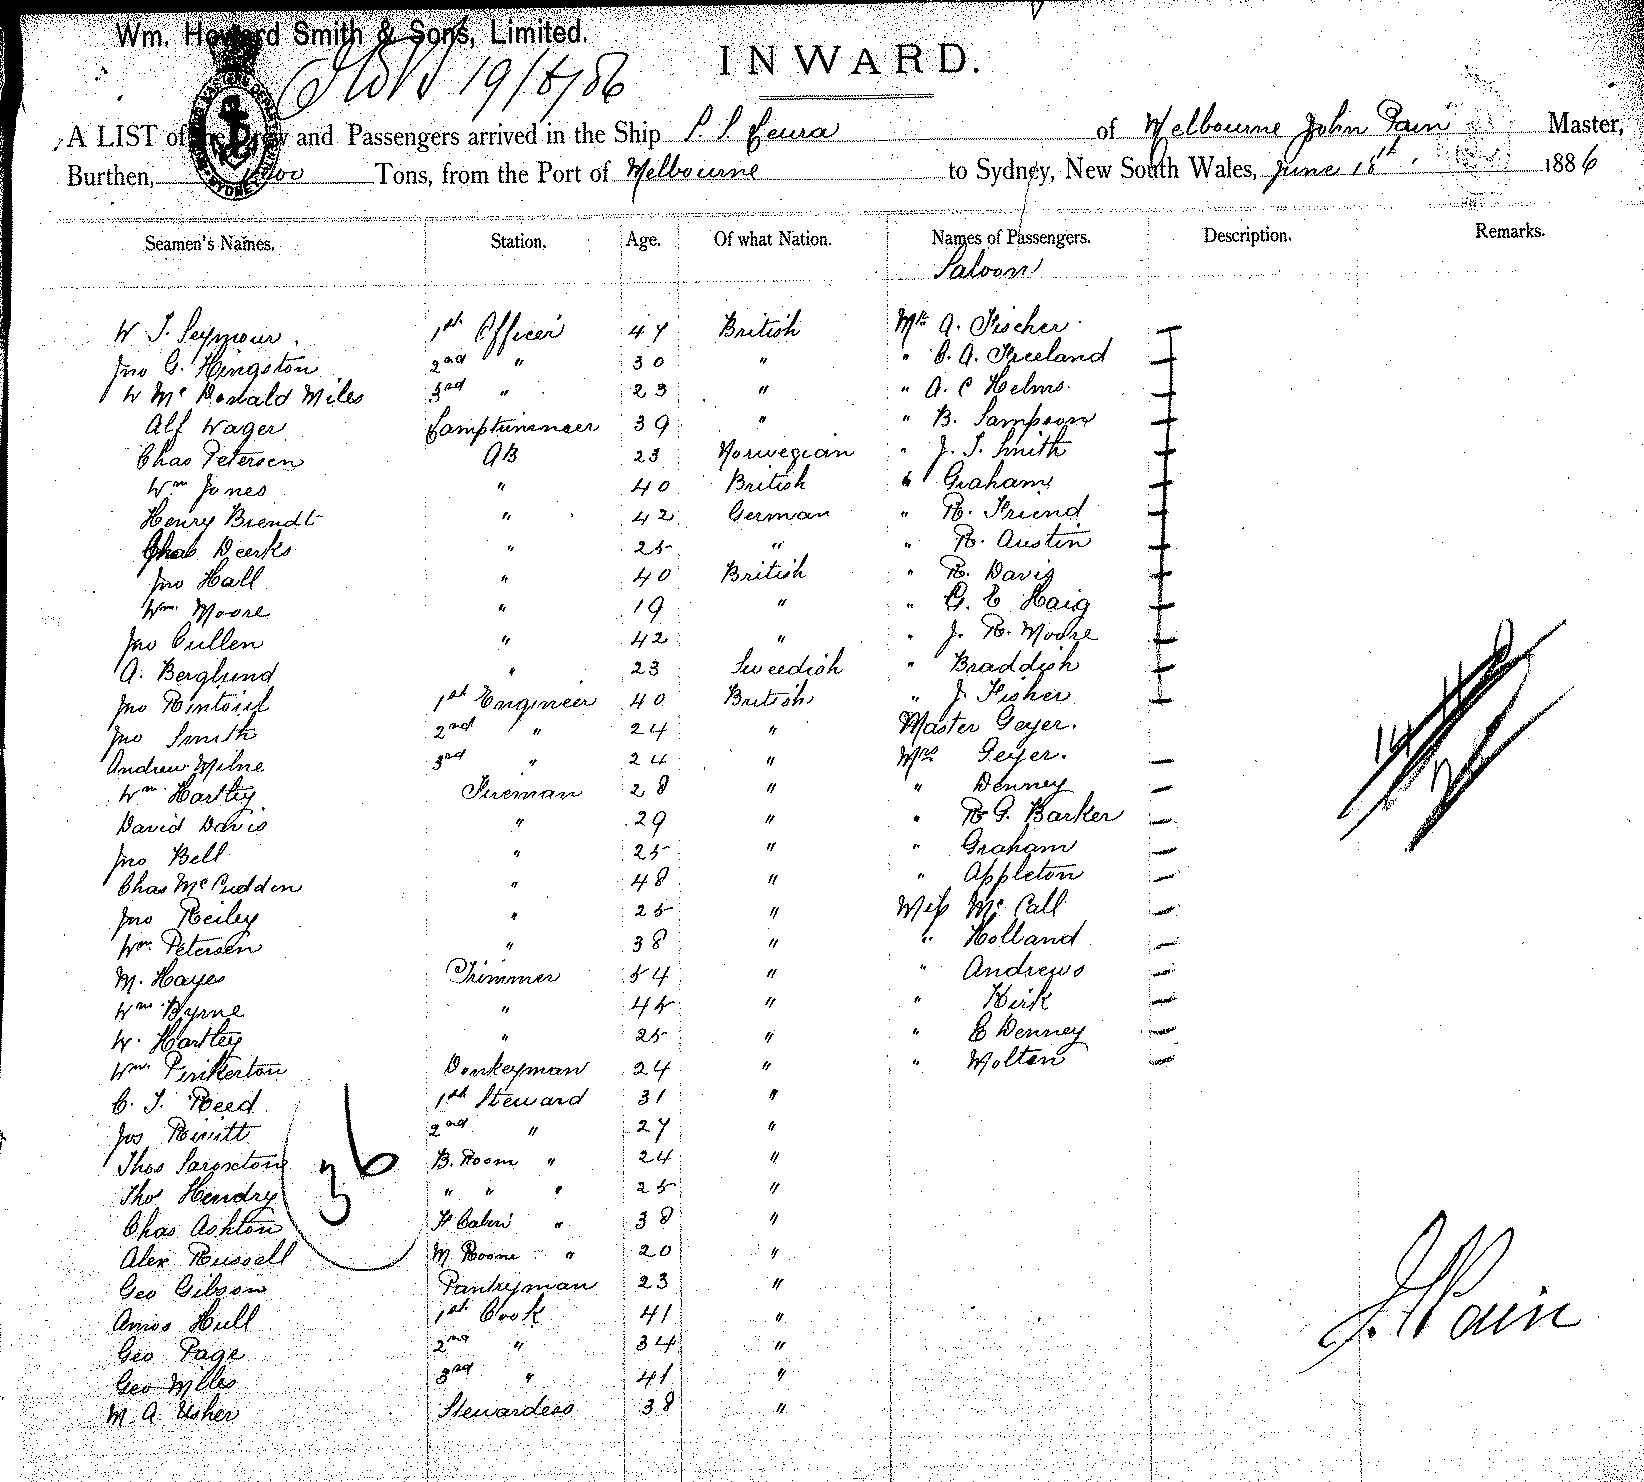 Wm. Howard Smith & Sons, Limited.
19/6/86
INWARD.
A LIST of the Crew and Passengers arrived in the Ship S. S. Keura of Melbourne John Pain Master,
Burthen, Tons, from the Port of Melbourne to Sydney, New South Wales, June 18th 1886
Seamen's Names. Station. Age. Of what Nation. Names of Passengers. Description. Remarks.
Saloon
W J. Seymour 1st Officer 47 British Mr A. Fischer
Jno G. Kingston 2nd " 30 " " C. A. Freeland
W Mc Donald Miles 3rd " 23 " " A. C Helms
Alf Wager Lamptrimmer 39 " " B. Sampson
Chas Petersen AB 23 Norwegian " J. S. Smith
Wm Jones " 40 British " Graham
Henry Brendt " 42 German " R. Friend
Chas Deerks " 25 " " R. Austin
Jno Hall " 40 British " R. Davis
Wm Moore " 19 " " G. E Haig
Jno Cullen " 42 " " J. R. Moore
A. Berglund " 23 Sweedish " Braddish
Jno Rintoul 1st Engineer 40 British " J. Fisher
Jno Smith 2nd " 24 " Master Geyer.
Andrew Milne 3rd " 24 " Mrs Geyer.
Wm Hartley Fireman 28 " " Denney
David Davis " 29 " " R G. Barker
Jno Bell " 25 " " Graham
Chas McCudden " 48 " " Appleton
Jno Reiley " 25 " Miss Mc Call
Wm Petersen " 38 " " Holland
M. Hayes Trimmer 54 " " Andrews
Wm Byrne " 45 " " Kirk
W. Hartley " 25 " " E Denney
Wm Pinkerton Donkeyman 24 " " Molten
C. J. Reed 1st Steward 31 "
Jos Rivitt 2nd " 27 "
Thos Saroxton B. Room " 24 "
Tho Hendry " " " 25 "
Chas Ashton F Cabin " 38 "
Alex Russell M Room " 20 "
Geo Gibson Pantryman 23 "
Amos Hull 1st Cook 41 "
Geo Page 2nd " 34 "
Geo Miles 3rd " 41 "
M A Usher Stewardess 38 "
36
J. Pain